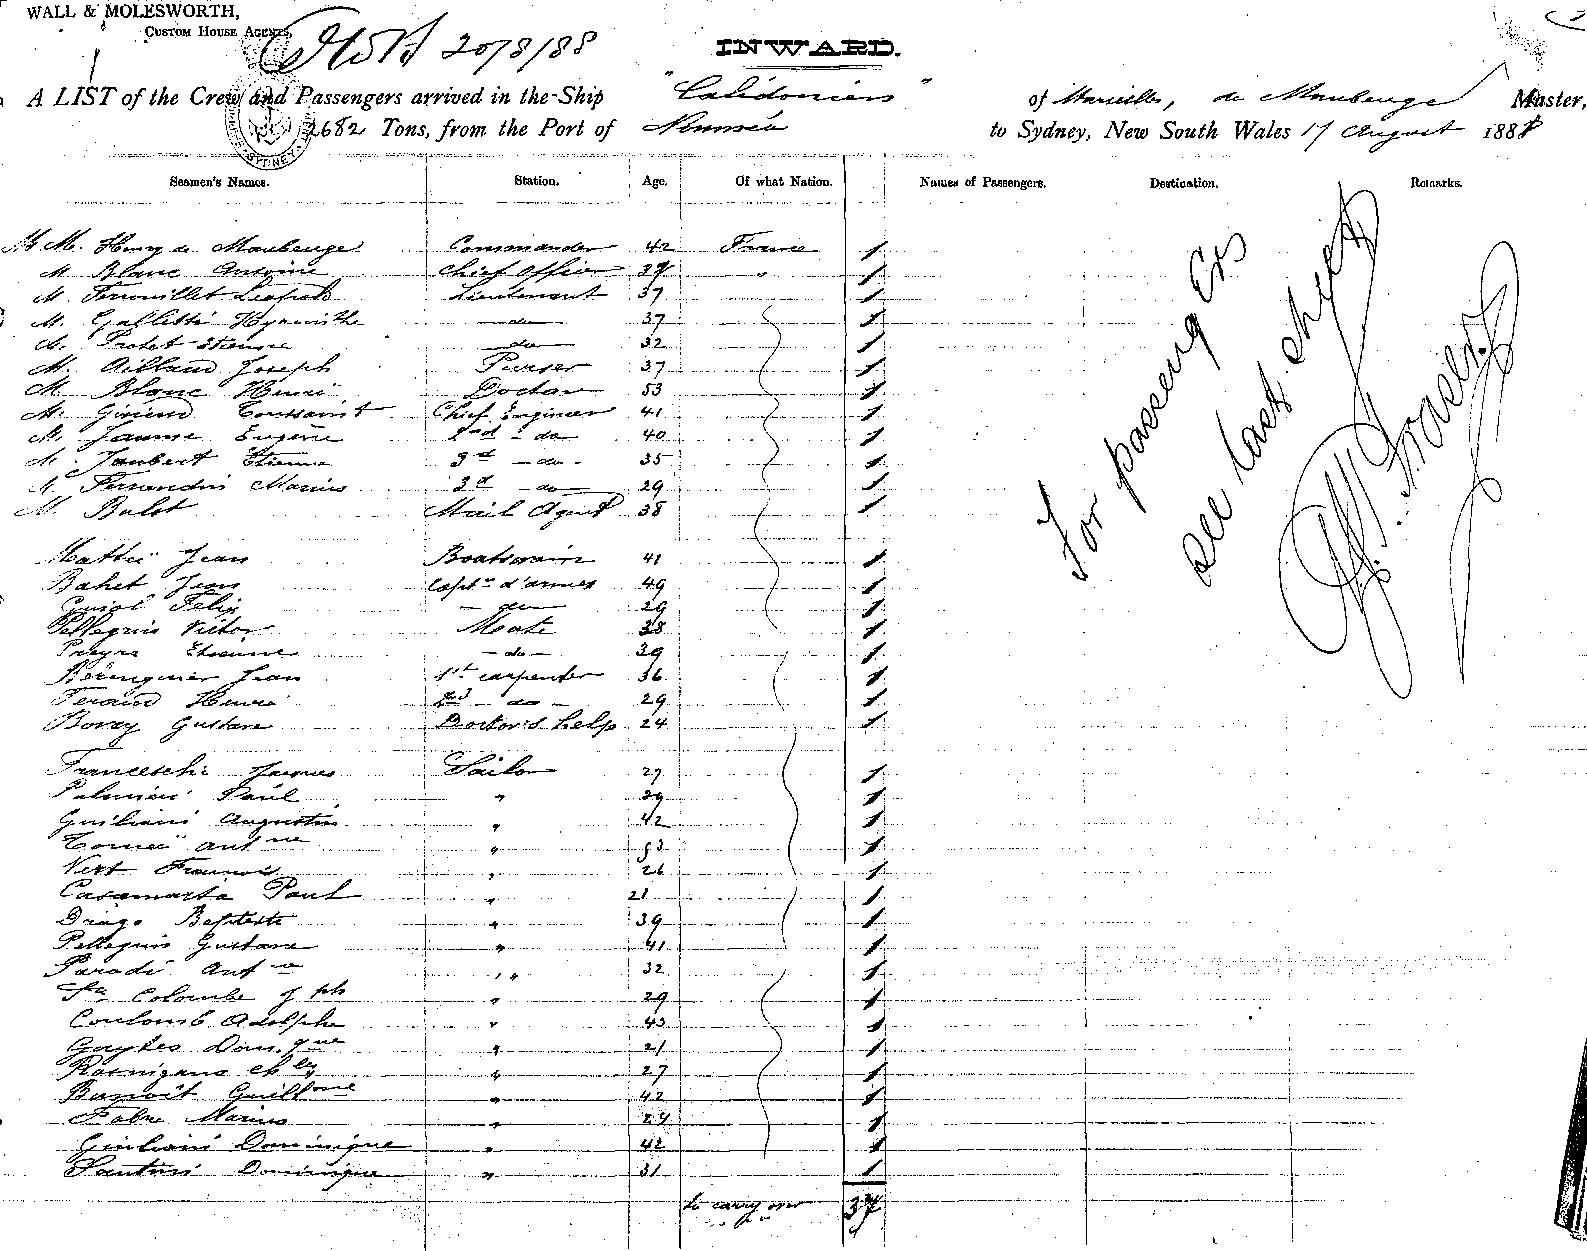 WALL & MOLESWORTH,
CUSTOM HOUSE AGENTS,
20/8/88
INWARD.
A LIST of the Crew and Passengers arrived in the Ship "Calédonien" of Marseilles, de Maubeuge Master,
2682 Tons, from the Port of Nouméa to Sydney, New South Wales 17 August 1888
Seamen's Names. Station. Age. Of what Nation. Names of Passengers. Destination. Remarks.
M. Henry de Maubeuge Commander 42 France 1
M. Blanc Antoine Chief Officer 1
M. Lieutenant 37 1
M. Galletti Hyacinthe do 37 1
M. Protet Etienne do 32 1
M. Aillaud Joseph Purser 37 1
M. Blanc Henri Doctor 53 1
M. Toussaint Chief Engineer 41 1
M. Jaume Eugène 2nd do 40 1
M. Jaubert Etienne 3d do 35 1
M. Ferrandin Marius 3d do 29 1
M. Balot Mail Agent 38 1
Mattei Jean Boatswain 41 1
Bahet Jean Capt. d'armes 49 1
Felix do 29 1
Pellegrin Victor Mate 38 1
Etienne do 39 1
Bérenguier Jean 1st carpenter 36 1
Feraud Henri 2nd do 29 1
Bovey Gustave Doctor's help 24 1
Franceschi Jacques Sailor 27 1
Paul " 39 1
Guiliani Augustin " 42 1
" 53 1
Vert Francois " 26 1
Casamarta Paul " 21 1
Drago Baptiste " 39 1
Pellegrin Gustave " 41 1
Paradi " 32 1
Colombe " 29 1
Coulomb Adolphe " 43 1
" 21 1
" 27 1
Benoit " 42 1
Fabre Marius " 1
Giuliani Dominique " 42 1
Santini Dominique " 31 1
to carry over 37
For passeng Crs
see last sheet